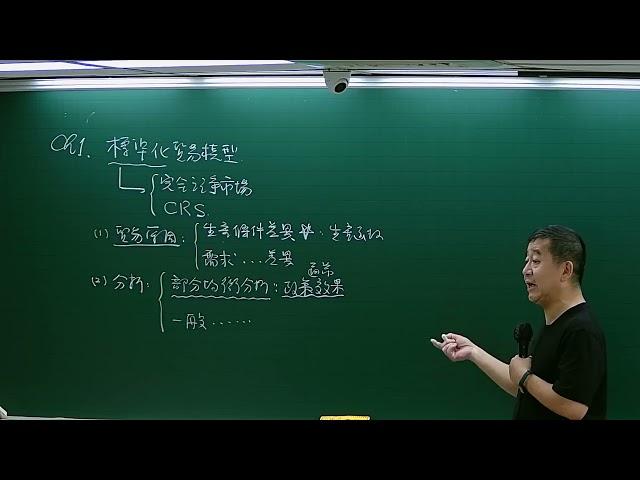 Ch1. 標準化貿易模型
完全競爭市場
CRS
(1) 貿易原因: 生產條件差異: 生產函數
需求...差異
(2) 分析: 部分均衡分析: 政策效果
一般......